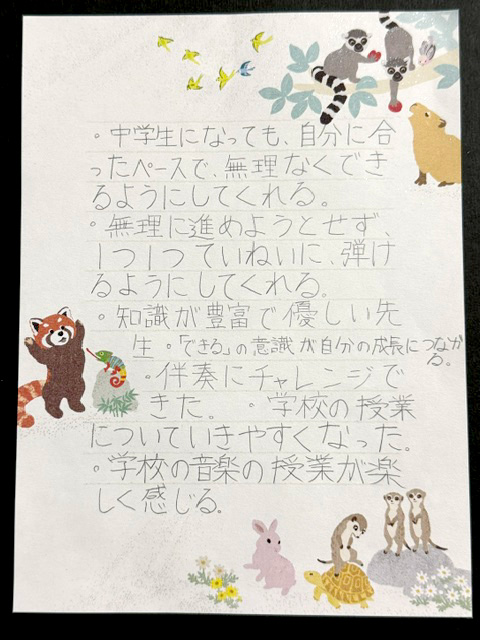 ・中学生になっても、自分に合
ったペースで、無理なくでき
るようにしてくれる。
・無理に進めようとせず、
1つ1つていねいに、弾け
るようにしてくれる。
・知識が豊富で優しい先
生 ・「できる」の意識が自分の成長につながる。
・伴奏にチャレンジで
きた。 ・学校の授業
についていきやすくなった。
・学校の音楽の授業が楽
しく感じる。